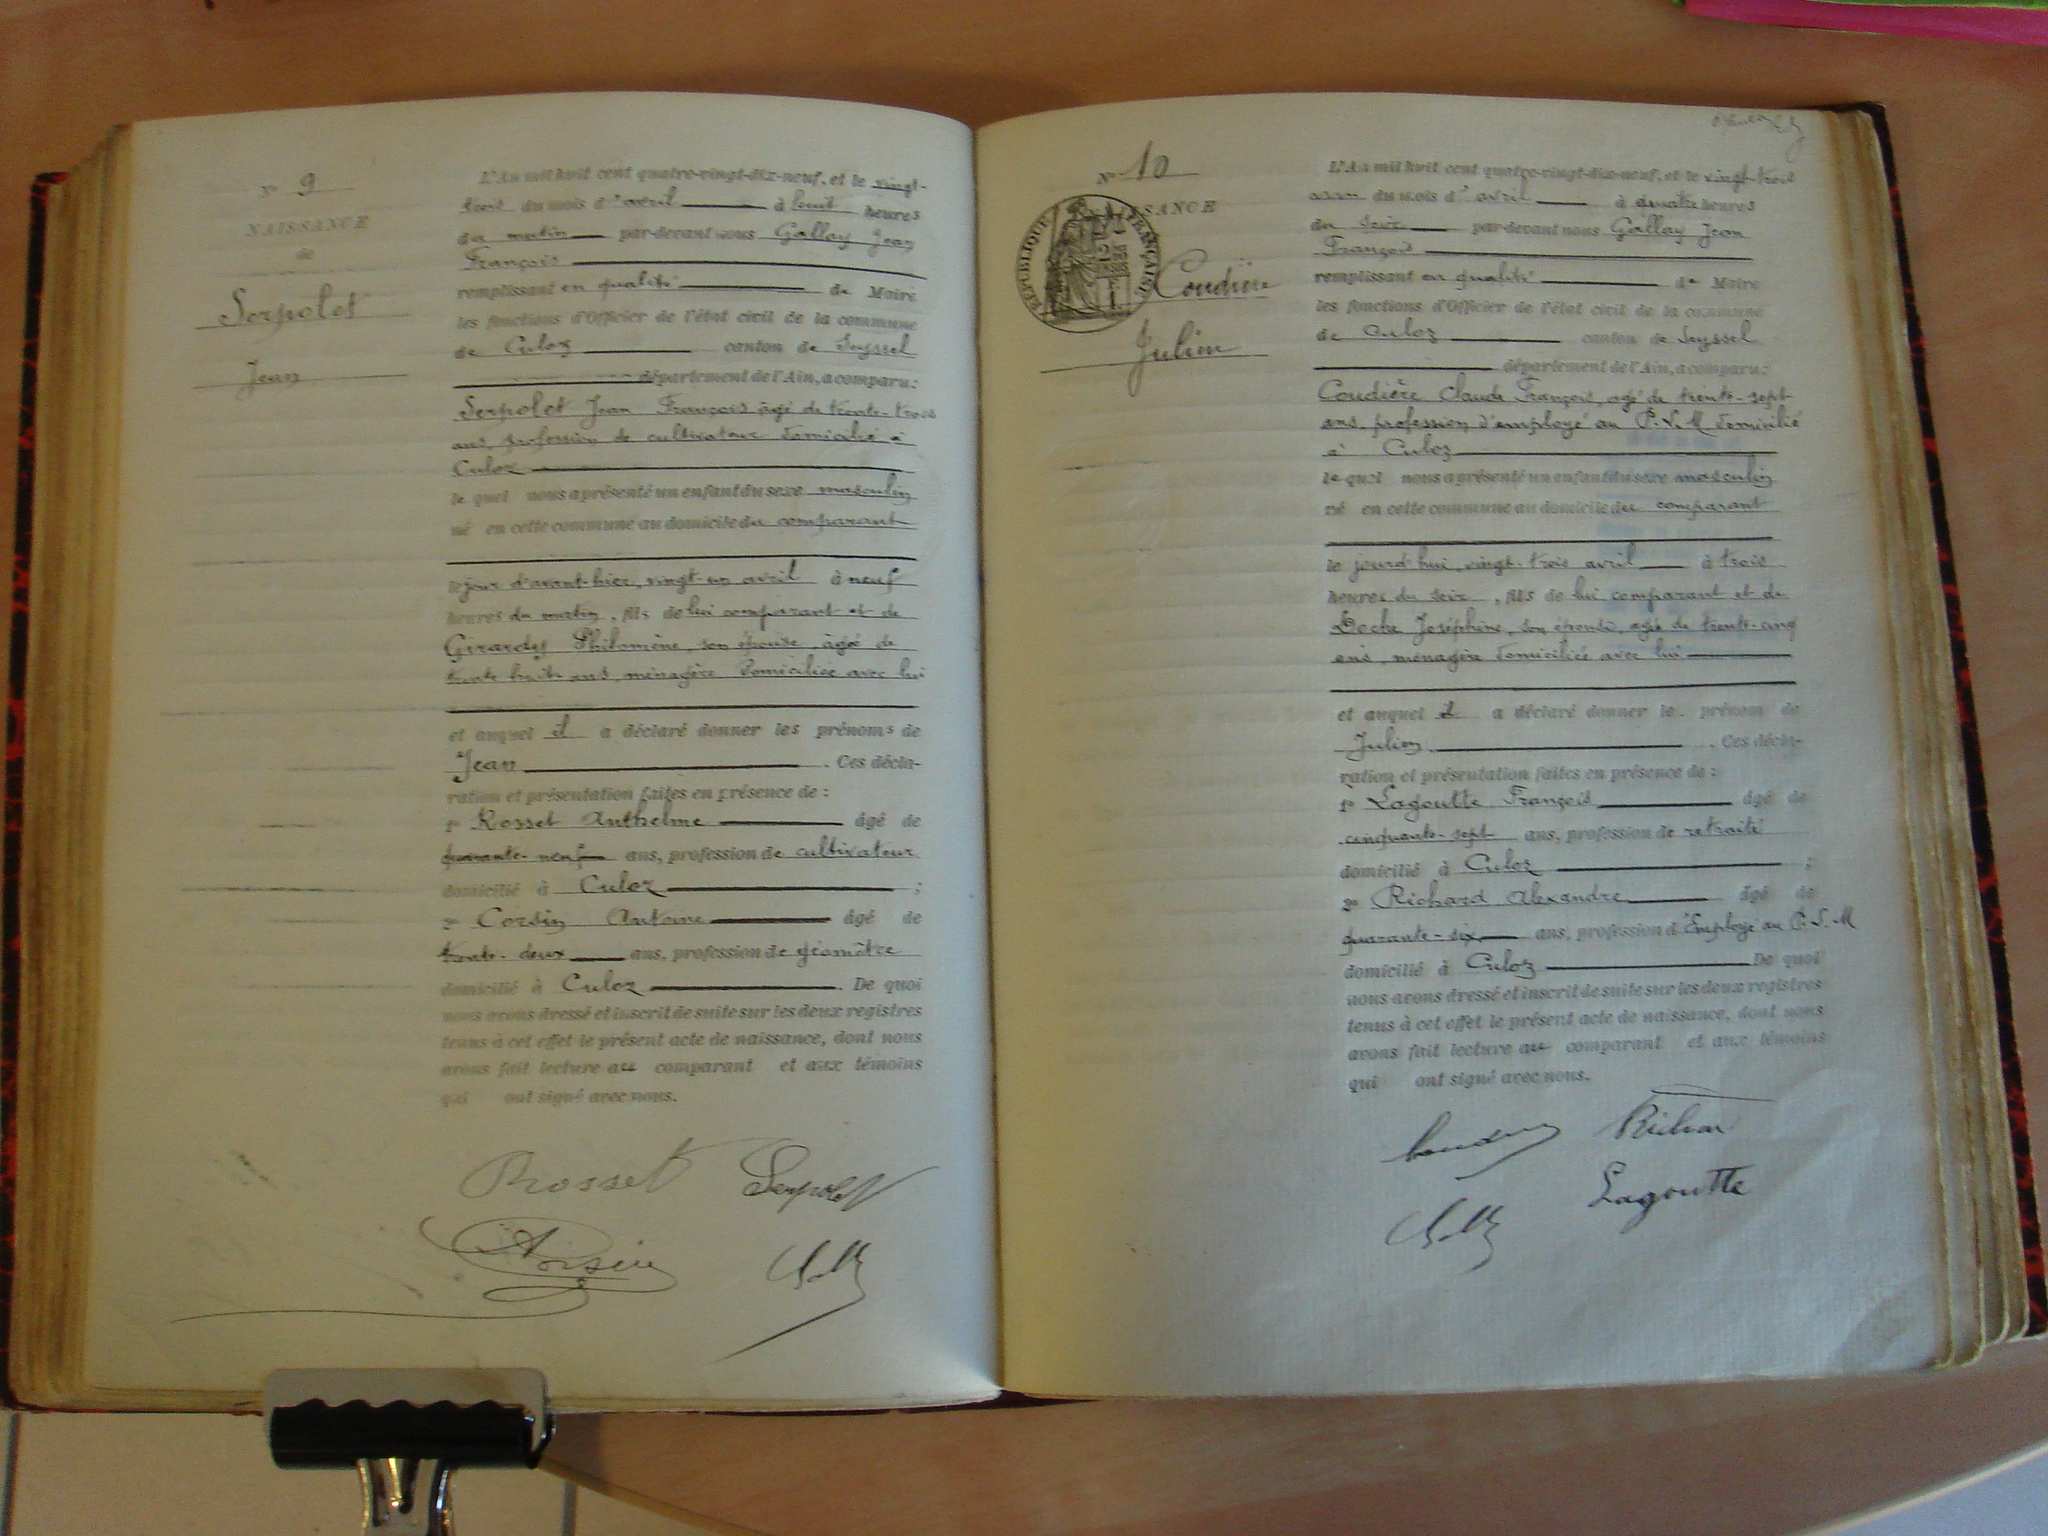 N° 9
NAISSANCE
de
Serpolet
Jean
L'An mil huit cent quatre-vingt-dix-neuf, et le vingt-
trois du mois d'avril à huit heures
du matin par-devant nous Gallay Jean
François
remplissant en qualité de Maire
les fonctions d'Officier de l'état civil de la commune
de Culoz canton de Seyssel
département de l'Ain, a comparu :
Serpolet Jean François âgé de trente-trois
ans, profession de cultivateur domicilié à
Culoz
lequel nous a présenté un enfant du sexe masculin
né en cette commune au domicile du comparant
le jour d'avant-hier, vingt-un avril à neuf
heures du matin, fils de lui comparant et de
Girardy Philomène, son épouse, âgée de
trente huit ans, ménagère domiciliée avec lui
et auquel il a déclaré donner les prénoms de
Jean . Ces décla-
ration et présentation faites en présence de :
1° Rosset Anthelme âgé de
quarante-neuf ans, profession de cultivateur
domicilié à Culoz ;
2° Corsin Antoine âgé de
trente-deux ans, profession de géomètre
domicilié à Culoz . De quoi
nous avons dressé et inscrit de suite sur les deux registres
tenus à cet effet le présent acte de naissance, dont nous
avons fait lecture au comparant et aux témoins
qui ont signé avec nous.
Rosset Serpolet
N° 10
SANCE
RÉPUBLIQUE FRANÇAISE
Coudière
Julien
L'An mil huit cent quatre-vingt-dix-neuf, et le vingt-trois
du mois d'avril à quatre heures
du soir par-devant nous Gallay Jean
François
remplissant en qualité de Maire
les fonctions d'Officier de l'état civil de la commune
de Culoz canton de Seyssel
département de l'Ain, a comparu :
Coudière Claude François, agé de trente-sept
ans, profession d'employé au P.L.M domicilié
à Culoz
lequel nous a présenté un enfant du sexe masculin
né en cette commune au domicile du comparant
le jourd'hui, vingt-trois avril à trois
heures du soir, fils de lui comparant et de
Doche Joséphine, son épouse, agée de trente-cinq
ans, ménagère domiciliée avec lui
et auquel il a déclaré donner le prénom de
Julien . Ces décla-
ration et présentation faites en présence de :
1° Lagoutte François âgé de
cinquante-sept ans, profession de retraité
domicilié à Culoz ;
2° Richard Alexandre âgé de
quarante-six ans, profession d'Employé au P.L.M
domicilié à Culoz De quoi
nous avons dressé et inscrit de suite sur les deux registres
tenus à cet effet le présent acte de naissance, dont nous
avons fait lecture au comparant et aux témoins
qui ont signé avec nous.
Lagoutte